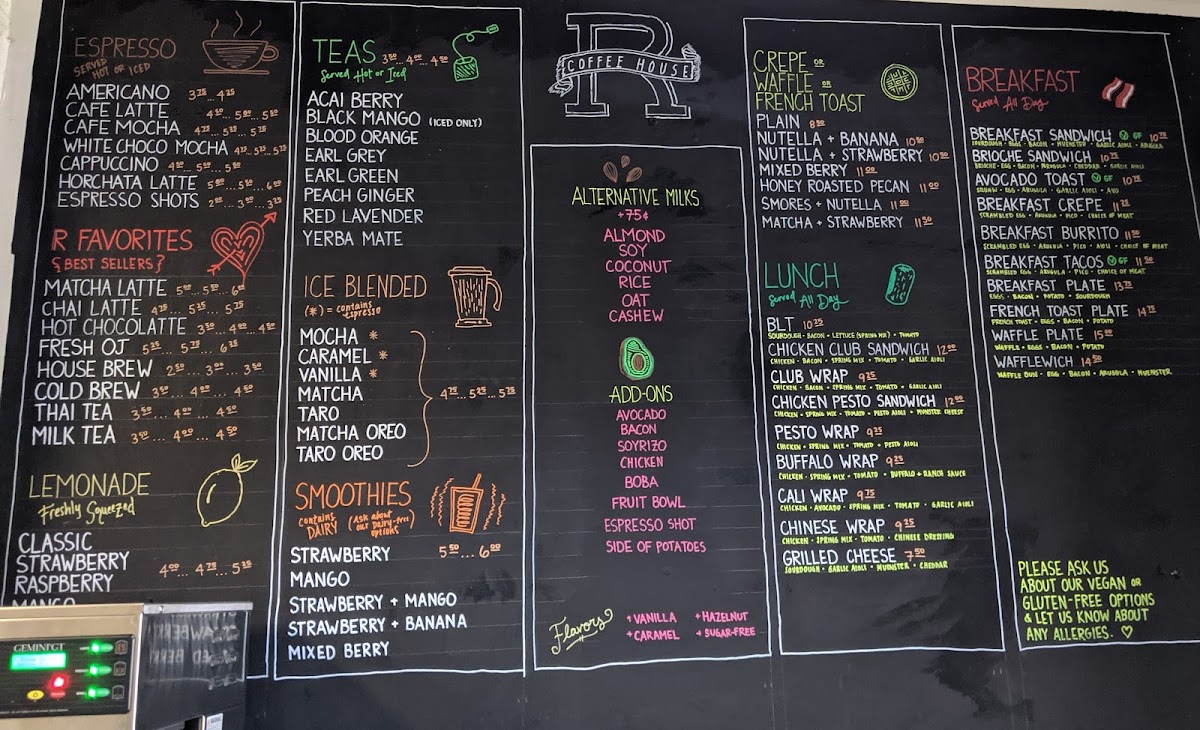 ESPRESSO
SERVED HOT OR ICED
AMERICANO 3.75 ... 4.25
CAFE LATTE 4.50 ... 5.00 ... 5.50
CAFE MOCHA 4.75 ... 5.25 ... 5.75
WHITE CHOCO MOCHA 4.75 ... 5.25 ... 5.75
CAPPUCCINO 4.50 ... 5.00 ... 5.50
HORCHATA LATTE 5.00 ... 5.50 ... 6.00
ESPRESSO SHOTS
R FAVORITES
{BEST SELLERS}
MATCHA LATTE
CHAI LATTE 4.75 ... 5.25 ... 5.75
HOT CHOCOLATTE 3.50 ... 4.00 ... 4.50
FRESH OJ
HOUSE BREW 2.50 ... 3.00 ... 3.50
COLD BREW 3.50 ... 4.00 ... 4.50
THAI TEA 3.50 ... 4.00 ... 4.50
MILK TEA 3.50 ... 4.00 ... 4.50
LEMONADE
Freshly Squeezed
CLASSIC
STRAWBERRY
RASPBERRY
MANGO
GEMINI GT
TEAS 3.50 ... 4.00 ... 4.50
Served Hot or Iced
ACAI BERRY
BLACK MANGO (ICED ONLY)
BLOOD ORANGE
EARL GREY
EARL GREEN
PEACH GINGER
RED LAVENDER
YERBA MATE
ICE BLENDED
(*) = contains espresso
MOCHA *
CARAMEL *
VANILLA *
MATCHA 4.75 ... 5.25 ... 5.75
TARO
MATCHA OREO
TARO OREO
SMOOTHIES
contains DAIRY (Ask about our Dairy-free options)
STRAWBERRY 5.50 ... 6.00
MANGO
STRAWBERRY + MANGO
STRAWBERRY + BANANA
MIXED BERRY
R
COFFEE HOUSE
ALTERNATIVE MILKS
+75¢
ALMOND
SOY
COCONUT
RICE
OAT
CASHEW
ADD-ONS
AVOCADO
BACON
SOYRIZO
CHICKEN
BOBA
FRUIT BOWL
ESPRESSO SHOT
SIDE OF POTATOES
Flavors
+ VANILLA + HAZELNUT
+ CARAMEL + SUGAR-FREE
CREPE OR
WAFFLE OR
FRENCH TOAST
PLAIN 8.50
NUTELLA + BANANA 10.50
NUTELLA + STRAWBERRY 10.50
MIXED BERRY 11.00
HONEY ROASTED PECAN 11.00
SMORES + NUTELLA 11.00
MATCHA + STRAWBERRY 11.50
LUNCH
Served All Day
BLT 10.25
SOURDOUGH • BACON • LETTUCE (SPRING MIX) • TOMATO
CHICKEN CLUB SANDWICH 12.00
CHICKEN • BACON • SPRING MIX • TOMATO • GARLIC AIOLI
CLUB WRAP 9.25
CHICKEN • BACON • SPRING MIX • TOMATO • GARLIC AIOLI
CHICKEN PESTO SANDWICH 12.00
CHICKEN • SPRING MIX • TOMATO • PESTO AIOLI • MUNSTER CHEESE
PESTO WRAP 9.25
CHICKEN • SPRING MIX • TOMATO • PESTO AIOLI
BUFFALO WRAP 9.25
CHICKEN • SPRING MIX • TOMATO • BUFFALO + RANCH SAUCE
CALI WRAP 9.75
CHICKEN • AVOCADO • SPRING MIX • TOMATO • GARLIC AIOLI
CHINESE WRAP 9.25
CHICKEN • SPRING MIX • TOMATO • CHINESE DRESSING
GRILLED CHEESE 7.50
SOURDOUGH • GARLIC AIOLI • MUENSTER • CHEDDAR
BREAKFAST
Served All Day
BREAKFAST SANDWICH V GF 10.75
SOURDOUGH • EGGS • BACON • MUENSTER • GARLIC AIOLI • ARUGULA
BRIOCHE SANDWICH 10.75
BRIOCHE • EGG • BACON • ARUGULA • CHEDDAR • GARLIC AIOLI
AVOCADO TOAST V GF 10.75
EGG • ARUGULA • GARLIC AIOLI • AVO
BREAKFAST CREPE 11.25
SCRAMBLED EGG • ARUGULA • PICO • CHOICE OF MEAT
BREAKFAST BURRITO 11.50
SCRAMBLED EGG • ARUGULA • PICO • AIOLI • CHOICE OF MEAT
BREAKFAST TACOS V GF 11.50
SCRAMBLED EGG • ARUGULA • PICO • CHOICE OF MEAT
BREAKFAST PLATE 13.75
EGGS • BACON • POTATO • SOURDOUGH
FRENCH TOAST PLATE 14.75
FRENCH TOAST • EGGS • BACON • POTATO
WAFFLE PLATE 15.00
WAFFLE • EGGS • BACON • POTATO
WAFFLEWICH 14.50
WAFFLE BUN • EGG • BACON • ARUGULA • MUENSTER
PLEASE ASK US
ABOUT OUR VEGAN OR
GLUTEN-FREE OPTIONS
& LET US KNOW ABOUT
ANY ALLERGIES. ♡